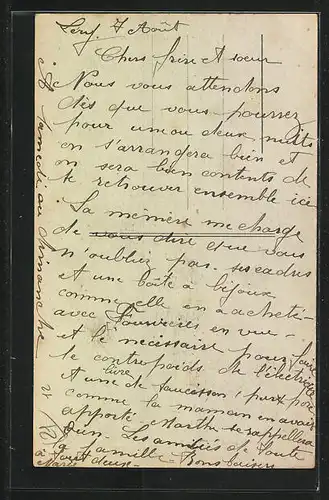 Lery. 7 Août
Chers frère et sœur
Nous vous attendons
dès que vous pourrez
pour un ou deux nuits
on s'arrangera bien et
on sera bien contents de
se retrouver ensemble ici
La mémère me charge
de vous dire que vous
n'oubliez pas ses cadres
et une boîte à bijoux
comme elle en a acheté
avec Louvières en vue -
et le nécessaire pour faire
le contrepoids de l'électricité
et une livre de saucisson pur porc
comme la maman en avait
apporté. Marthe se rappellera
bien. Les amitiés de toute
la famille Bons baisers
à tous deux
Marie
le samedi au Dimanche